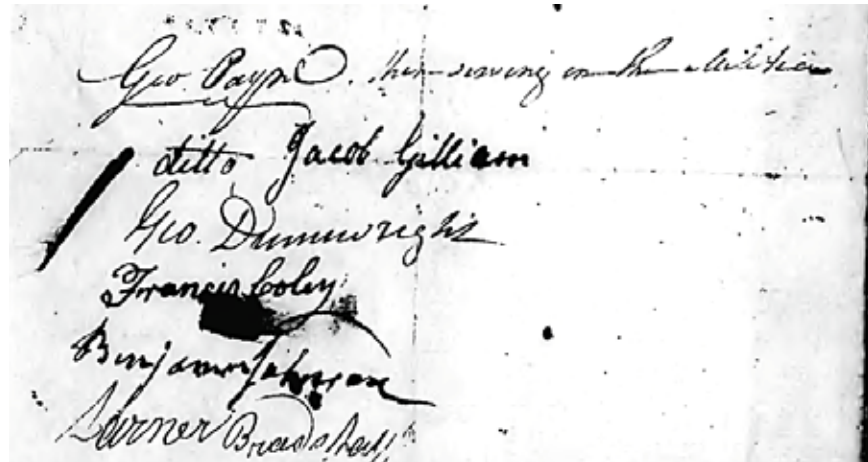 Geo. Payne. then serving in the Militia
ditto Jacob Gilliam
Geo. Dunnwright
Francis Coley
Benjamin Johnson
Larner Bradshaw